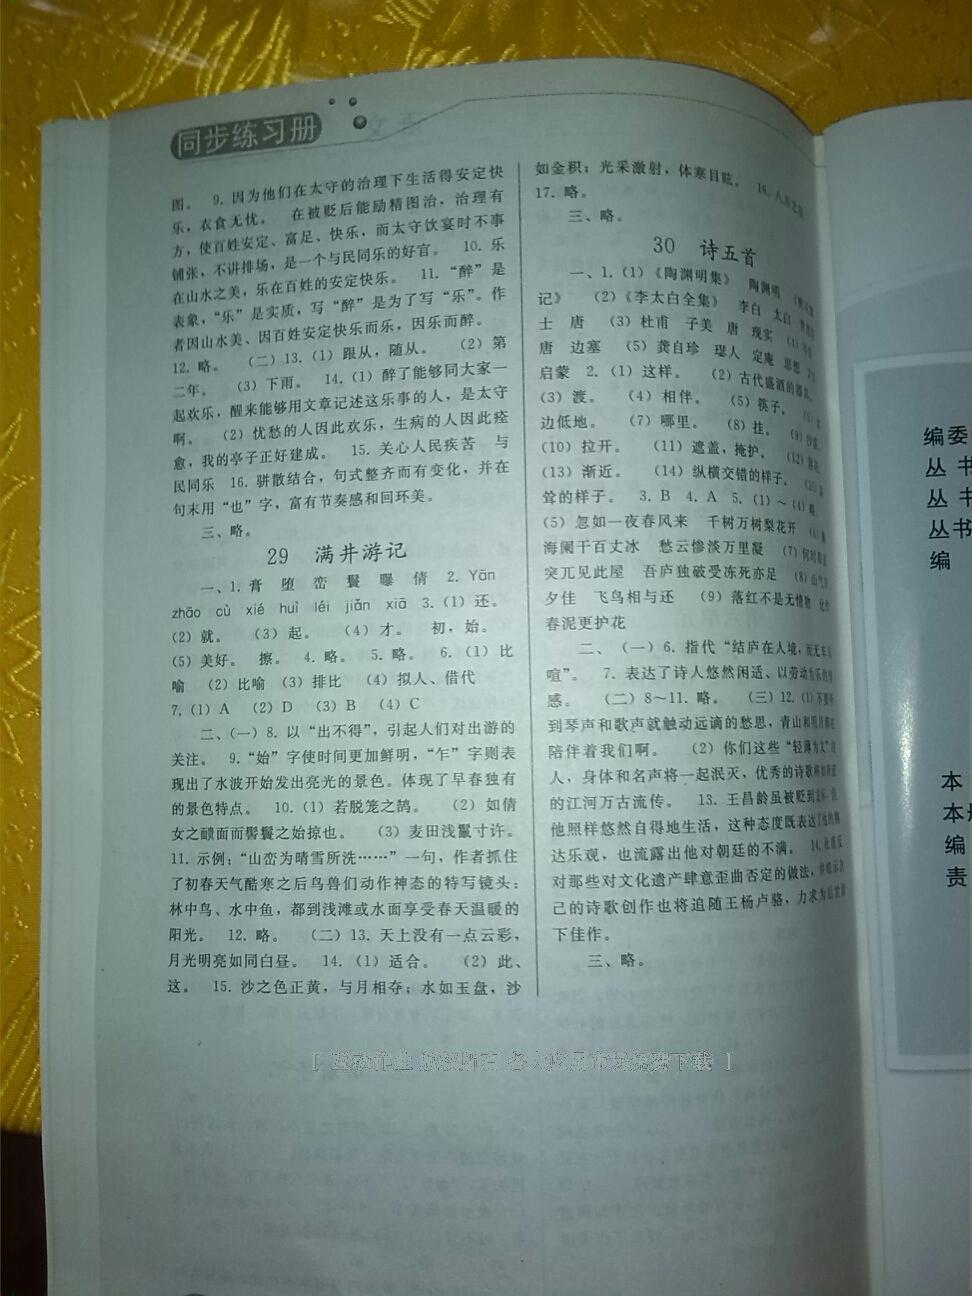 同步练习册
图。　9. 因为他们在太守的治理下生活得安定快
乐，衣食无忧。　在被贬后能励精图治，治理有
方，使百姓安定、富足、快乐，而太守饮宴时不事
铺张，不讲排场，是一个与民同乐的好官。　10. 乐
在山水之美，乐在百姓的安定快乐。　11. “醉”是
表象，“乐”是实质，写“醉”是为了写“乐”。作
者因山水美、因百姓安定快乐而乐，因乐而醉。
12. 略。　（二）13.（1）跟从，随从。　（2）第
二年。　（3）下雨。　14.（1）醉了能够同大家一
起欢乐，醒来能够用文章记述这乐事的人，是太守
啊。　（2）忧愁的人因此欢乐，生病的人因此痊
愈，我的亭子正好建成。　15. 关心人民疾苦　与
民同乐　16. 骈散结合，句式整齐而有变化，并在
句末用“也”字，富有节奏感和回环美。
三、略。
29　满井游记
一、1. 膏　堕　峦　鬟　曝　倩　2. Yān
zhāo　cù　xié　huì　léi　jiǎn　xiā　3.（1）还。
（2）就。　（3）起。　（4）才。　初，始。
（5）美好。　擦。　4. 略。　5. 略。　6.（1）比
喻　（2）比喻　（3）排比　（4）拟人、借代
7.（1）A　（2）D　（3）B　（4）C
二、（一）8. 以“出不得”，引起人们对出游的
关注。　9. “始”字使时间更加鲜明，“乍”字则表
现出了水波开始发出亮光的景色。体现了早春独有
的景色特点。　10.（1）若脱笼之鹄。　（2）如倩
女之靧面而髻鬟之始掠也。　（3）麦田浅鬣寸许。
11. 示例：“山峦为晴雪所洗……”一句，作者抓住
了初春天气酷寒之后鸟兽们动作神态的特写镜头：
林中鸟、水中鱼，都到浅滩或水面享受春天温暖的
阳光。　12. 略。　（二）13. 天上没有一点云彩，
月光明亮如同白昼。　14.（1）适合。　（2）此、
这。　15. 沙之色正黄，与月相夺；水如玉盘，沙
如金积；光采激射，体寒目眩。　16. 八月之
17. 略。
三、略。
30　诗五首
一、1.（1）《陶渊明集》　陶渊明
记》　（2）《李太白全集》　李白　太白
士　唐　（3）杜甫　子美　唐　现实　（4）
唐　边塞　（5）龚自珍　璱人　定庵　思想
启蒙　2.（1）这样。　（2）古代盛酒的器具。
（3）渡。　（4）相伴。　（5）筷子。　（6）水
边低地。　（7）哪里。　（8）挂。　（9）沙漠。
（10）拉开。　（11）遮盖，掩护。　（12）
（13）渐近。　（14）纵横交错的样子。　（15）
耸的样子。　3. B　4. A　5.（1）～（4）略。
（5）忽如一夜春风来　千树万树梨花开　（6）瀚
海阑干百丈冰　愁云惨淡万里凝　（7）何时眼前
突兀见此屋　吾庐独破受冻死亦足　（8）山气日
夕佳　飞鸟相与还　（9）落红不是无情物　化作
春泥更护花
二、（一）6. 指代“结庐在人境，而无车马
喧”。　7. 表达了诗人悠然闲适、以劳动为乐的
感。　（二）8～11. 略。　（三）12.（1）不要听
到琴声和歌声就触动远谪的愁思，青山和明月都在
陪伴着我们啊。　（2）你们这些“轻薄为文”的
人，身体和名声将一起泯灭，优秀的诗歌将如
的江河万古流传。　13. 王昌龄虽被贬到龙标，但
他照样悠然自得地生活，这种态度既表达了他的
达乐观，也流露出他对朝廷的不满。　14. 杜甫反
对那些对文化遗产肆意歪曲否定的做法，并暗示自
己的诗歌创作也将追随王杨卢骆，力求为后世留
下佳作。
三、略。
编委
丛 书
丛 书
丛书
编
本
本册
编
责